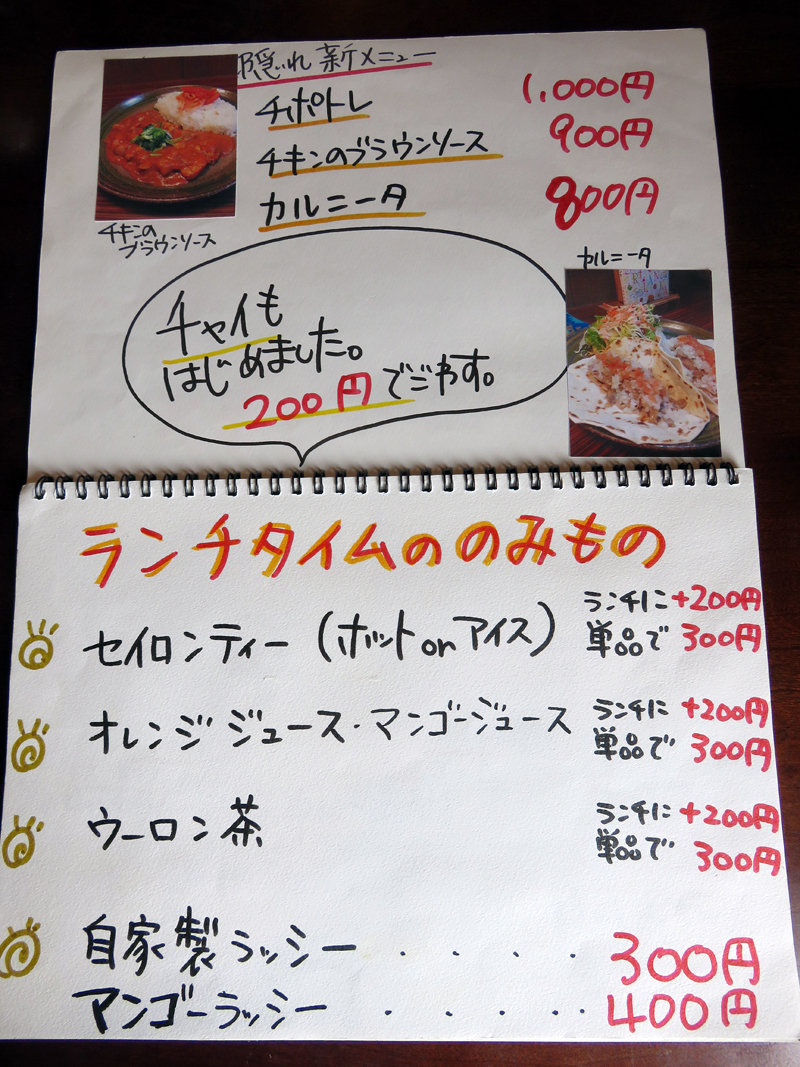 隠れ新メニュー
チポトレ 1,000円
チキンのブラウンソース 900円
カルニータ 800円
チキンの
ブラウンソース
カルニータ
チャイも
はじめました。
200円でございやす。
ランチタイムののみもの
セイロンティー(ホット or アイス) ランチに +200円
単品で 300円
オレンジジュース・マンゴージュース ランチに +200円
単品で 300円
ウーロン茶 ランチに +200円
単品で 300円
自家製ラッシー . . . . 300円
マンゴーラッシー . . . . . 400円